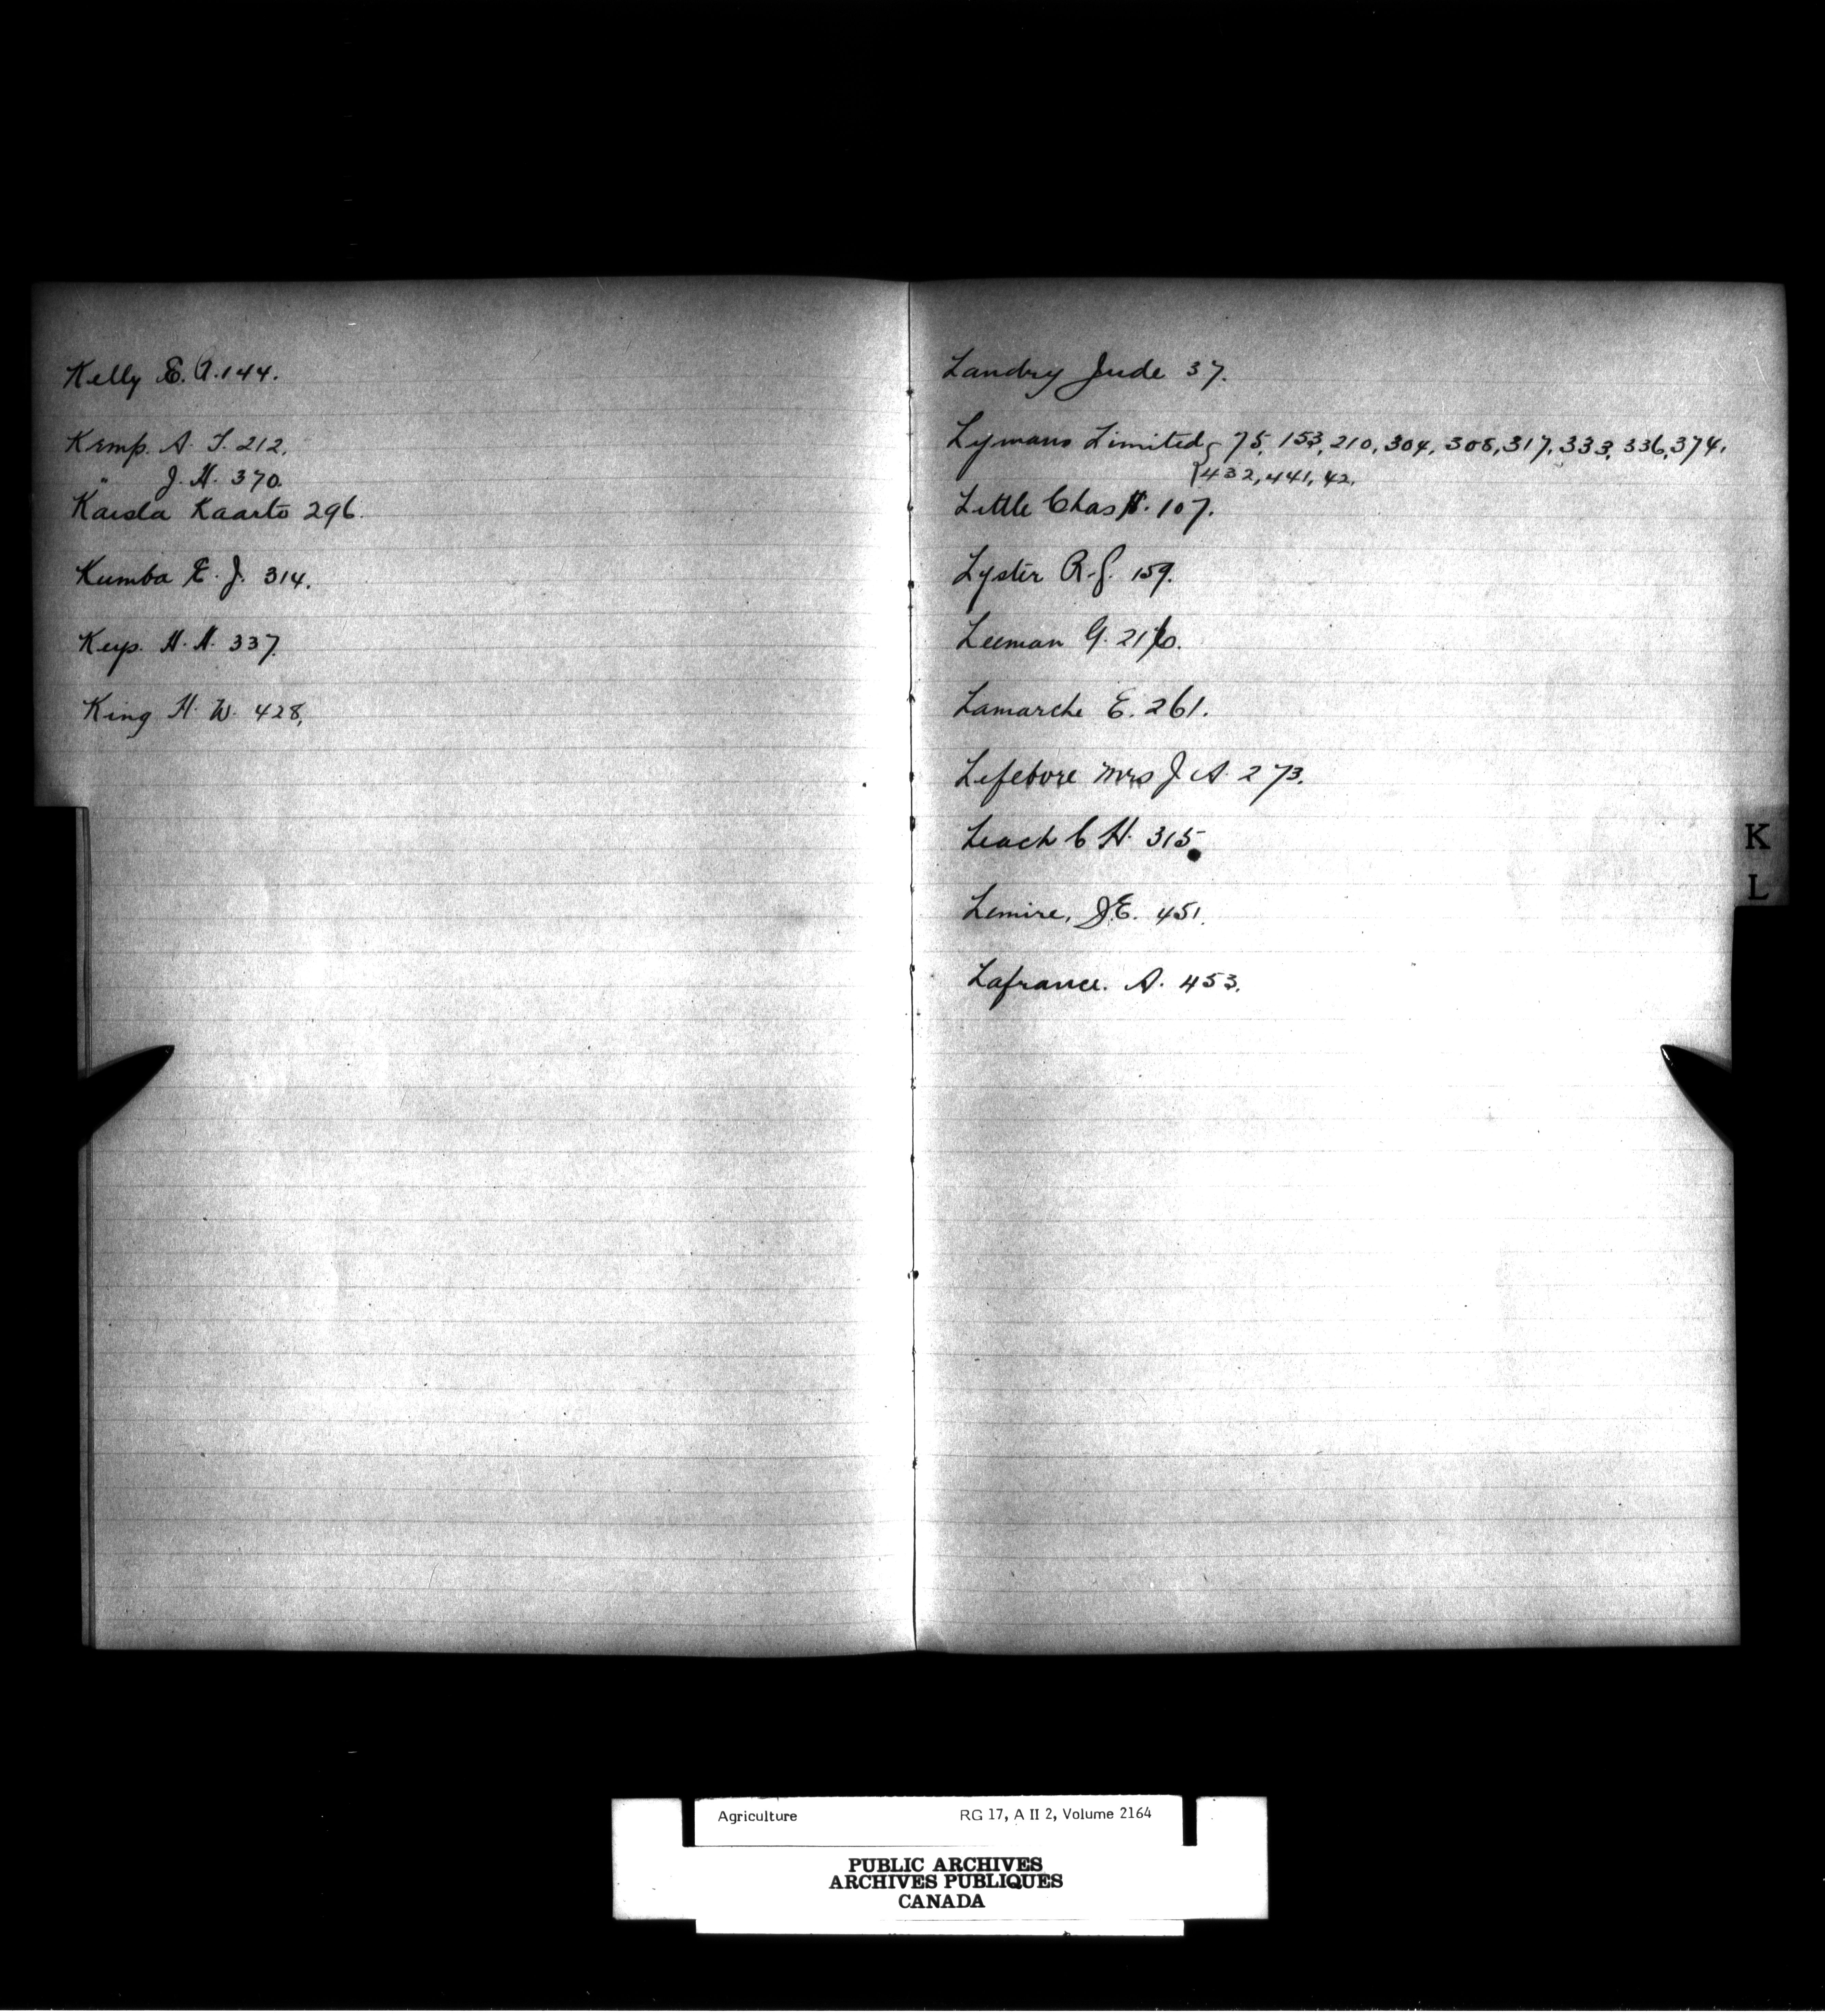 Kelly E. A. 144.
Kemp. A. T. 212.
" J. H. 370.
Kaisla Kaarto 296.
Kumba E. J. 314.
Keys. H. H. 337.
King H. W. 428.
Landry Jude 37.
Lymans Limited { 75, 153, 210, 304, 308, 317, 333, 336, 374.
{ 432, 441, 42.
Little Chas H. 107.
Lyster R. J. 159.
Leeman G.
Lamarche E. 261.
Lefebvre Mrs J A. 273.
Leach C H. 315
Lemire, J.E. 451.
Lafrance. A. 453.
K
L
Agriculture RG 17, A II 2, Volume 2164
PUBLIC ARCHIVES
ARCHIVES PUBLIQUES
CANADA